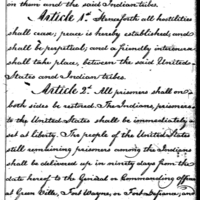 on them and the said Indian tribes.
Article 1st Henceforth all hostilities
shall cease; peace is hereby established and
shall be perpetual; and a friendly intercourse
shall take place, between the said United
States and Indian tribes.
Article 2d All prisoners shall on
both sides be restored. The Indians, prisoners
to the United States shall be immediately
set at liberty. The people of the United States
still remaining prisoners among the Indians
shall be delivered up in ninety days from the
date hereof to the General or Commanding officer
at Green Ville, Fort Wayne, or Fort Defiance; and